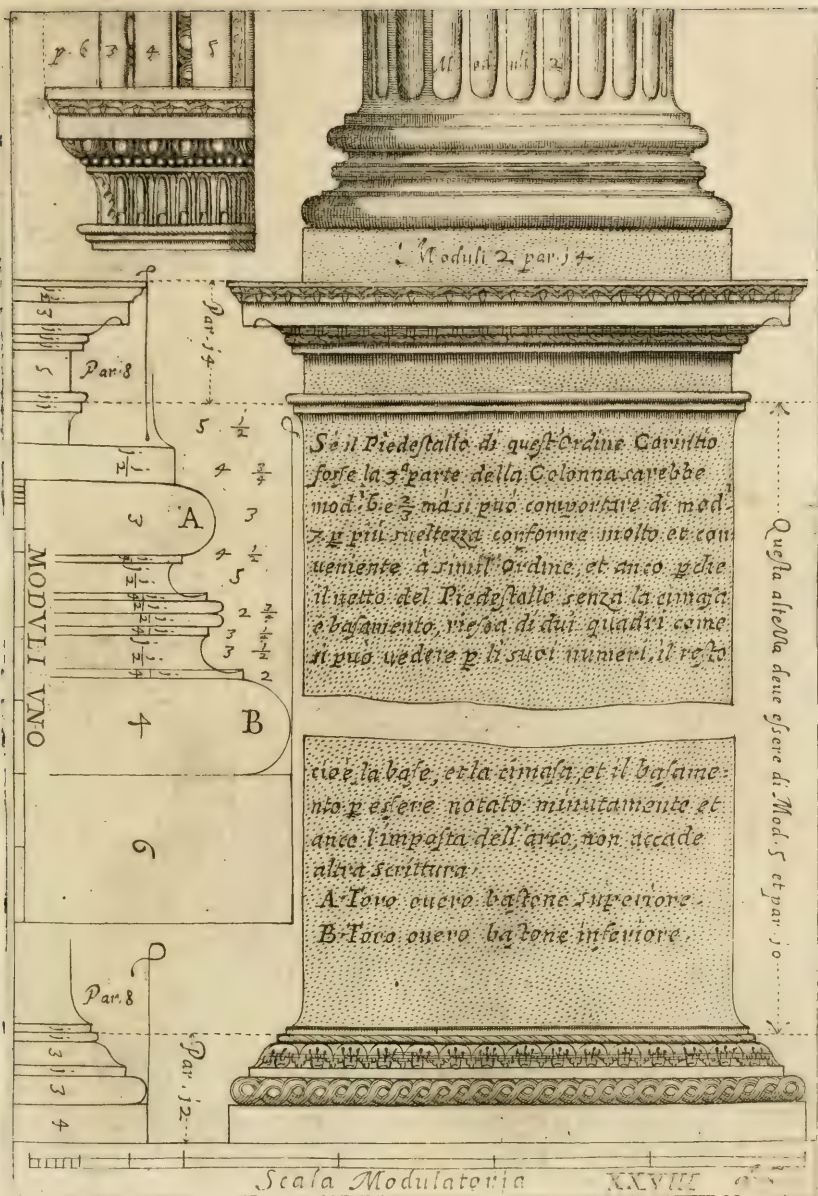 p. 6 3 4 5
Moduli 2
Moduli 2 par. j4
Par. j4
j
j/2
3
j
j
j
5
j
j
Par. 8
5 j/2
4 3/4
3
4 j/2
5
2 3/4
3 j/2
3 j/2
2
j j/2
3 A
j/2
j j/2
j/2
j/4
j/2
j/4
j j/2
j/4
4 B
6
MODVLI VNO
Se il Piedestallo di quest'Ordine Corintio
fosse la 3ª parte della Colonna sarebbe
mod.ˡⁱ 6. e 2/3 mà si può comportare di mod.ˡⁱ
7. p più sueltezza conforme molto et con
ueniente à simil'Ordine, et anco pche
il netto del Piedestallo senza la cimasa
e basamento, riesca di dui quadri come
si può uedere p li suoi numeri, il resto
cioè la base, et la cimasa, et il basame-
nto p essere notato minutamente et
anco l'imposta dell'arco, non accade
altra scrittura.
A Toro ouero bastone superiore.
B Toro ouero bastone inferiore.
Questa altezza deue essere di Mod. 5 et par jo
Par. 8
Par. j2
j
j
3
j
3
4
Scala Modulatoria XXVIII